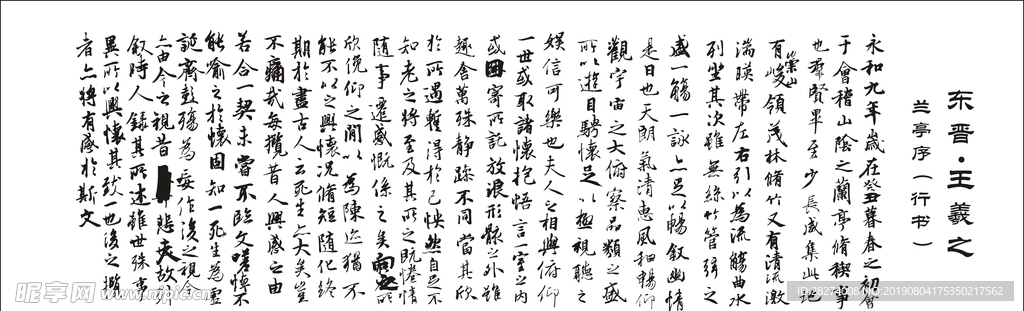 东晋·王羲之
兰亭序（行书）
永和九年歲在癸丑暮春之初會
于會稽山陰之蘭亭脩稧事
也羣賢畢至少長咸集此地
有崇山峻領茂林脩竹又有清流激
湍暎帶左右引以為流觴曲水
列坐其次雖無絲竹管弦之
盛一觴一詠亦足以暢敘幽情
是日也天朗氣清惠風和暢仰
觀宇宙之大俯察品類之盛
所以遊目騁懷足以極視聽之
娛信可樂也夫人之相與俯仰
一世或取諸懷抱悟言一室之內
或因寄所託放浪形骸之外雖
趣舍萬殊靜躁不同當其欣
於所遇暫得於己怏然自足不
知老之將至及其所之既惓情
隨事遷感慨係之矣向之所
欣俛仰之閒以為陳迹猶不
能不以之興懷況脩短隨化終
期於盡古人云死生亦大矣豈
不痛哉每攬昔人興感之由
若合一契未嘗不臨文嗟悼不
能喻之於懷固知一死生為虛
誕齊彭殤為妄作後之視今
亦由今之視昔悲夫故列
敘時人錄其所述雖世殊事
異所以興懷其致一也後之攬
者亦將有感於斯文
昵享网 www.nipic.cn
ID:28274008 NO:20190804175350217562